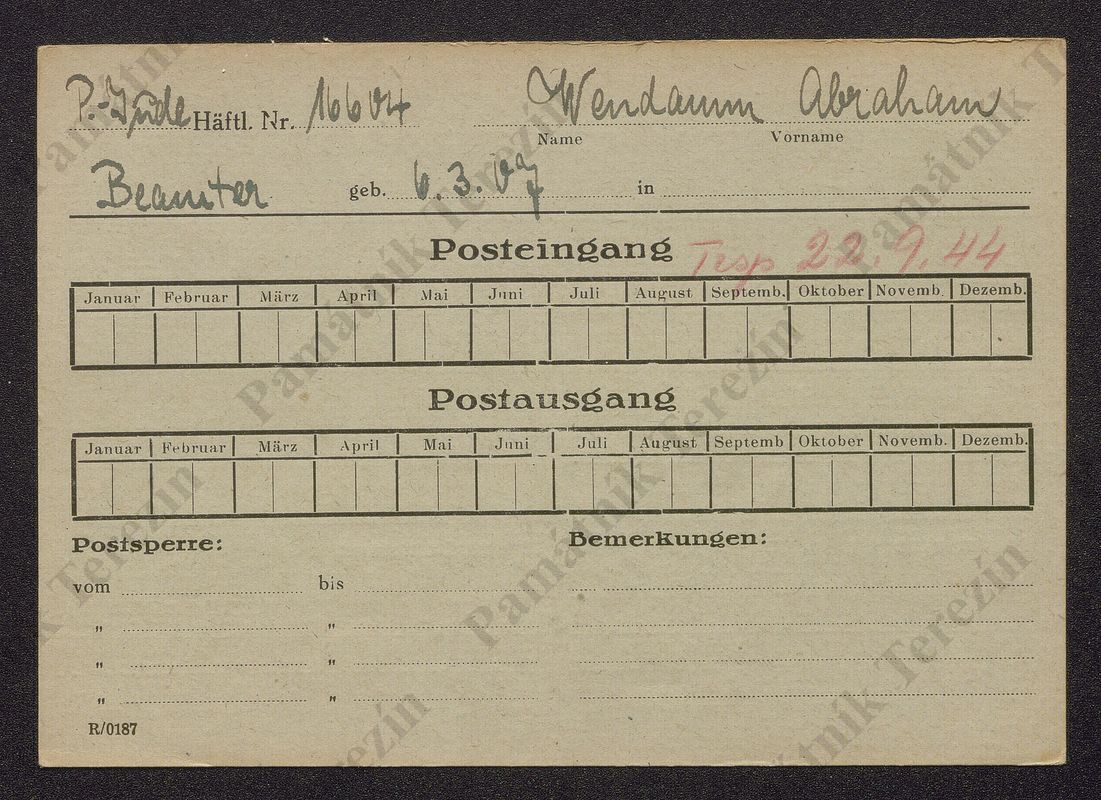 P.-Jude Häftl. Nr. 16604 Wendaum Abraham
Name Vorname
Beamter geb. 6.3.09 in
Posteingang 22.9.44
Januar Februar März April Mai Juni Juli August Septemb. Oktober Novemb. Dezemb.
Postausgang
Januar Februar März April Mai Juni Juli August Septemb Oktober Novemb. Dezemb.
Postsperre: Bemerkungen:
vom bis
" "
" "
" "
R/0187
Památník Terezín